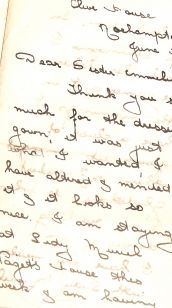 Clive House
Roehampto
June
Dear Sister Emmilin
Thank you s
much for the dresse
gown, it was just
I wanted, I
have altered & mended
it & it looks so
nice. I am staying
at Lady Muriel
Pagets House this
week I am having